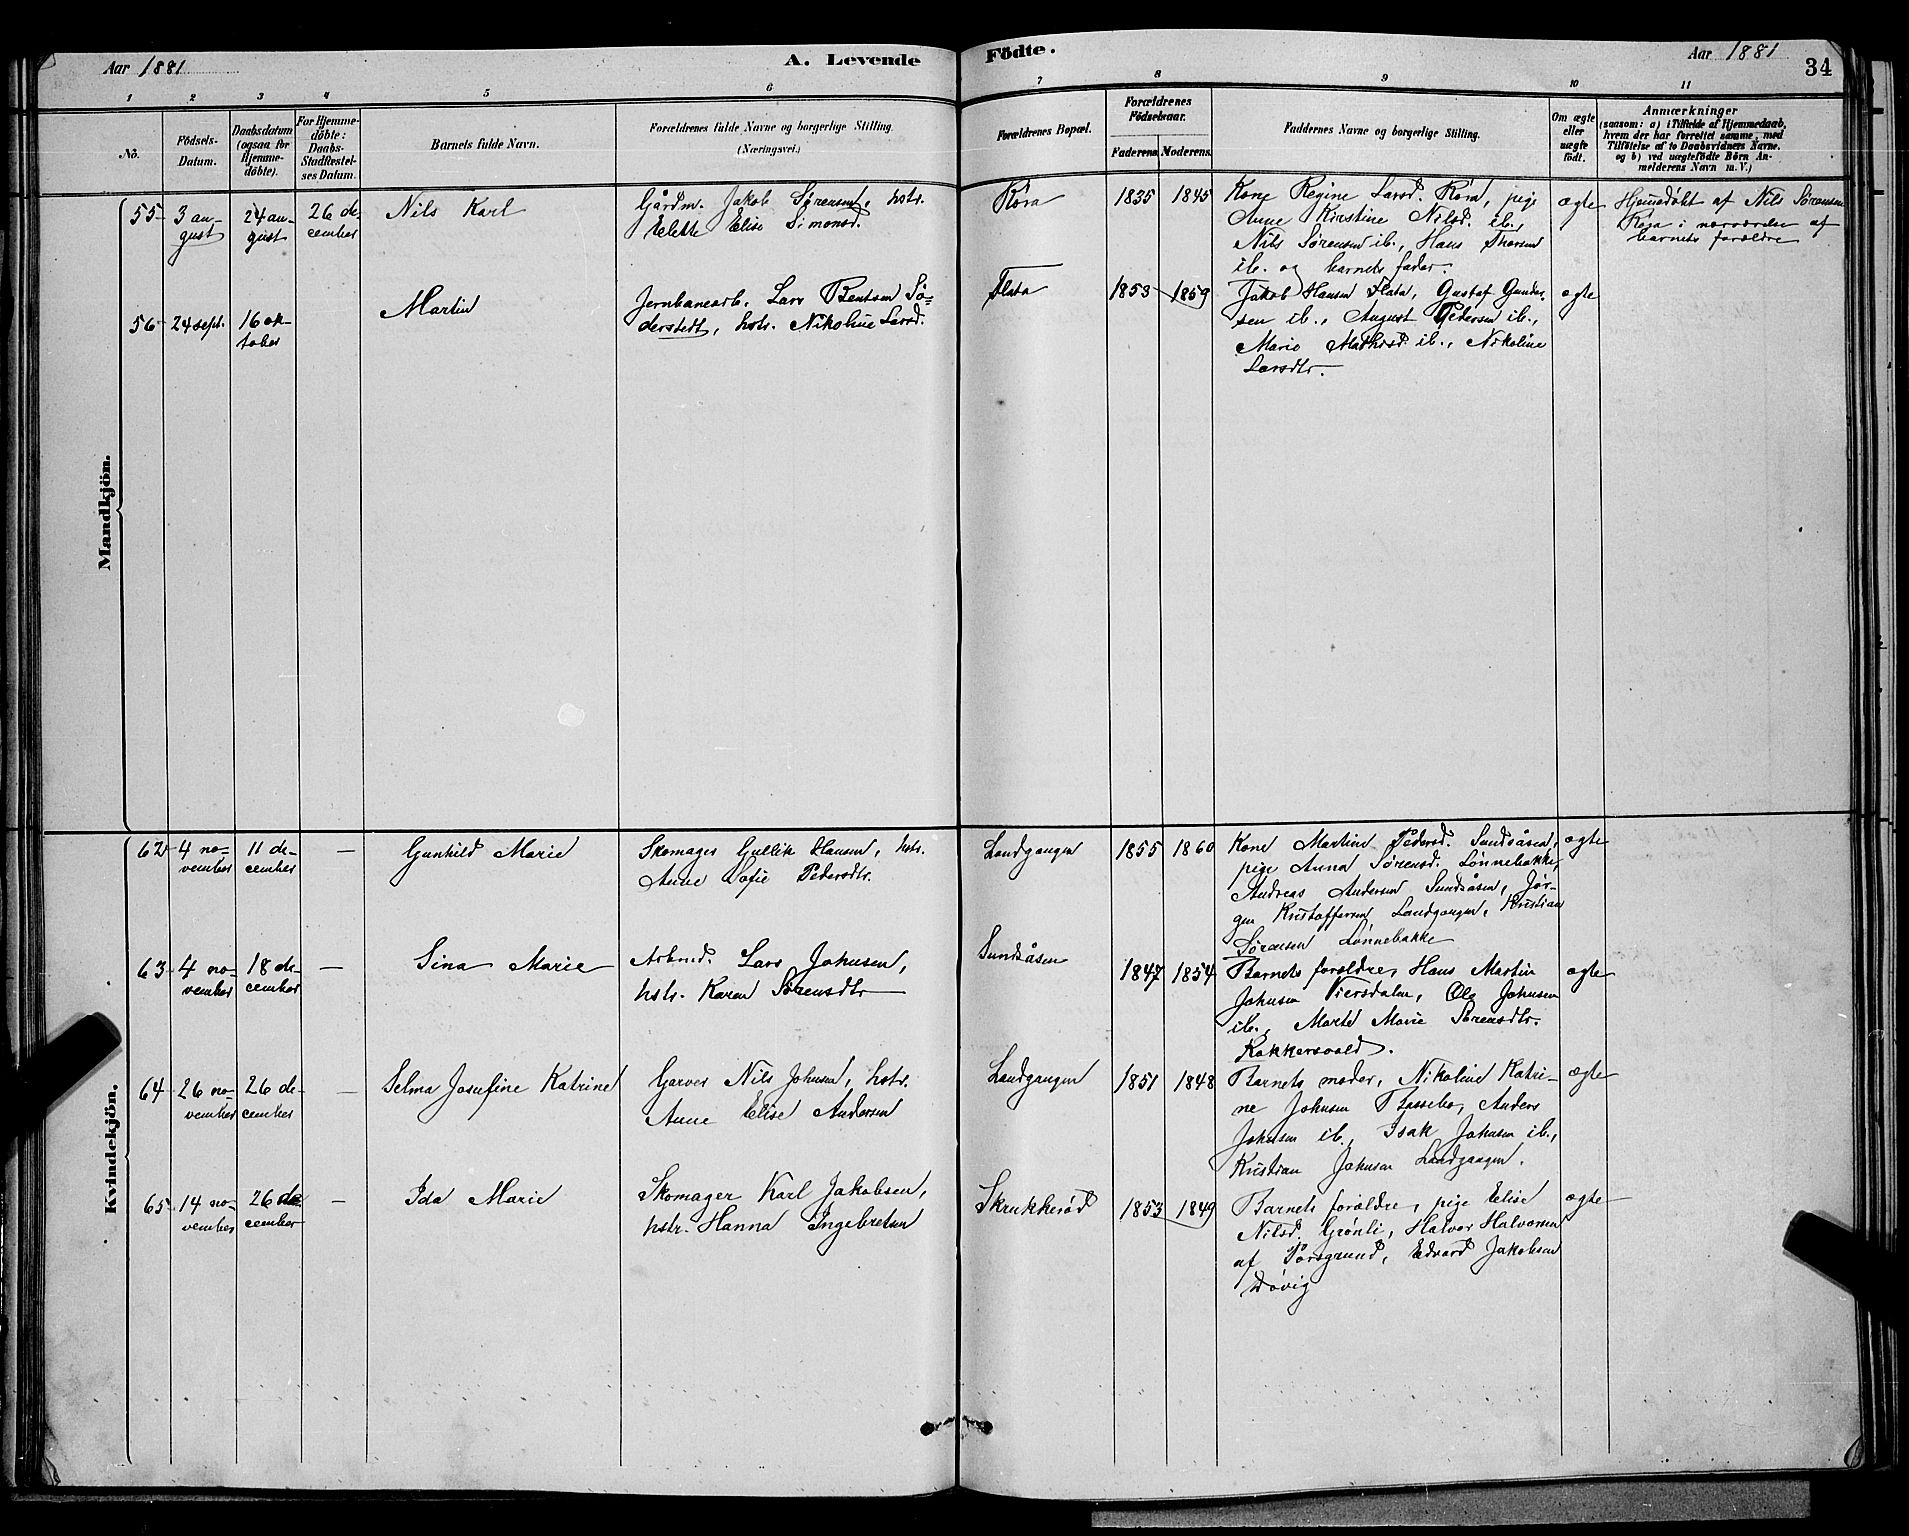 Aar 1881
A. Levende
Födte.
Aar 1881
34
1 2 3 4 5 6 7 8 9 10 11
No.
Födsels-
Datum.
Daabsdatum
(ogsaa for
Hjemme-
döbte).
For Hjemme-
döbte:
Daabs-
Stadfæstel-
ses Datum.
Barnets fulde Navn.
Forældrenes fulde Navne og borgerlige Stilling.
(Næringsvei.)
Forældrenes Bopæl.
Forældrenes
Födselsaar.
Faderens Moderens
Faddernes Navne og borgerlige Stilling.
Om ægte
eller
uægte
födt.
Anmærkninger
(saasom: a) i Tilfælde af Hjemmedaab,
hvem der har forrettet samme, med
Tilföielse af to Daabsvidners Navne.
og b) ved uægtefödte Börn An-
melderens Navn m. V.)
Mandkjön.
55
3 au-
gust
24 au-
gust
26 de-
cember
Nils Karl
Gårdm. Jakob Sørensen, hstr.
Elise Simonsd.
Røra
1835 1845
Kone Regine Larsd. Røra, pige
Anne Kirstine Nilsd. ib.,
Nils Sørensen ib., Hans
ib. og barnets fader.
ægte
Hjemmedøbt af Nils Sørensen
Røra i nærværelse af
barnets forældre
56
24 sept.
16 ok-
tober
Martin
Jernbanearb. Lars Bentsen Sø-
derstedt, hstr. Nikoline Larsd.
Flata
1853 1859
Jakob Hansen Flata, Gustaf Gunder-
sen ib., August Pedersen ib.,
Marie Mathisd. ib., Nikoline
Larsdtr.
ægte
Kvindekjön.
62
4 no-
vember
11 de-
cember
—
Gunhild Marie
Skomager Gullik Hansen, hstr.
Anne Sofie Pedersdtr.
Landgangen
1855 1860
Kone Martine Pedersd. Sundsåsen,
pige Anna Sørensd. Lønnebakke,
Andreas Andersen Sundsåsen, Jør-
gen Kristoffersen Landgangen, Kristian
Sørensen Lønnebakke
ægte
63
4 no-
vember
18 de-
cember
—
Sina Marie
Arbmd. Lars Johnsen,
hstr. Karen Sørensdtr
Sundsåsen
1847 1854
Barnets forældre, Hans Martin
Johnsen Viersdalen, Ole Johnsen
ib., Marte Marie Sørensdtr.
Kokkersvold.
ægte
64
26 no-
vember
26 de-
cember
—
Selma Josefine Katrine
Garver Nils Johnsen, hstr.
Anne Elise Andersen
Landgangen
1851 1848
Barnets moder, Nikoline Katri-
ne Johnsen Bassebo, Anders
Johnsen ib., Isak Johnsen ib.,
Kristian Johnsen Landgangen.
ægte
65
14 no-
vember
26 de-
cember
—
Ida Marie
Skomager Karl Jakobsen,
hstr. Hanna Ingebretsen
Skrukkerød
1853 1849
Barnets forældre, pige Elise
Nilsd. Grønli, Halvor Halvorsen
af Porsgrund, Edvard Jakobsen
Døvig
ægte